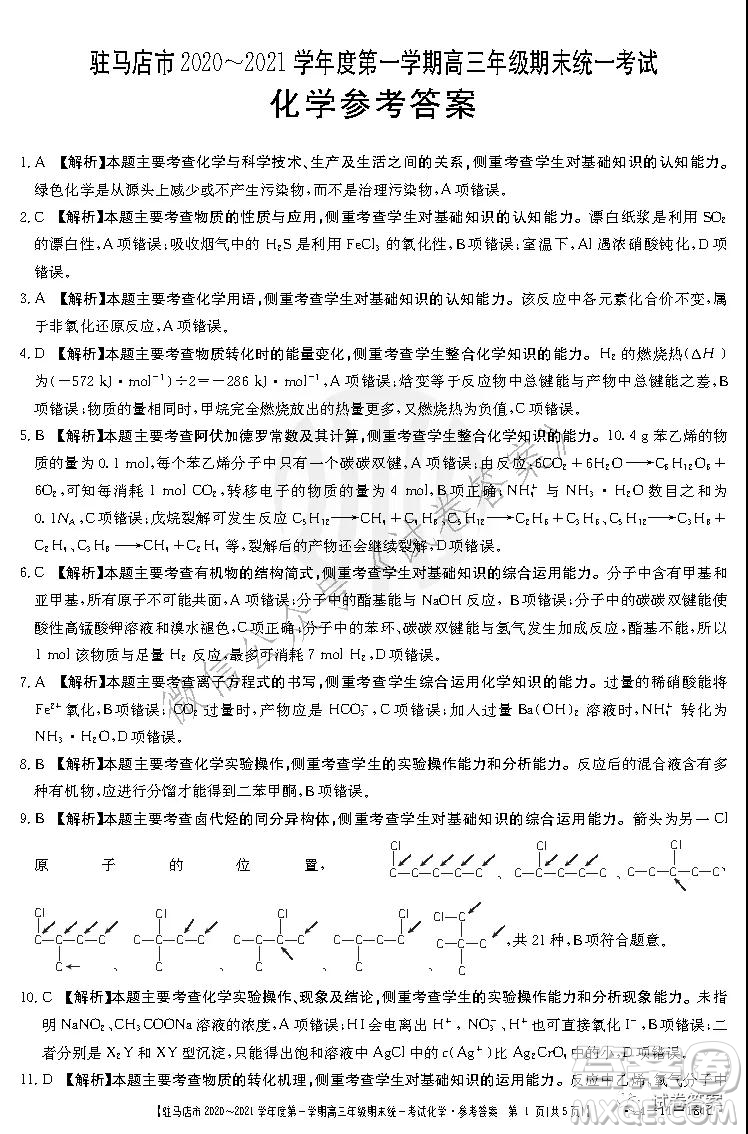 驻马店市 2020～2021 学年度第一学期高三年级期末统一考试
化学参考答案
1. A 【解析】本题主要考查化学与科学技术、生产及生活之间的关系,侧重考查学生对基础知识的认知能力。
绿色化学是从源头上减少或不产生污染物,而不是治理污染物,A项错误。
2. C 【解析】本题主要考查物质的性质与应用,侧重考查学生对基础知识的认知能力。漂白纸浆是利用 SO₂
的漂白性,A 项错误;吸收烟气中的 H₂S 是利用 FeCl₃ 的氧化性,B项错误;室温下,Al 遇浓硝酸钝化,D 项
错误。
3. A 【解析】本题主要考查化学用语,侧重考查学生对基础知识的认知能力。该反应中各元素化合价不变,属
于非氧化还原反应,A项错误。
4. D 【解析】本题主要考查物质转化时的能量变化,侧重考查学生整合化学知识的能力。H₂ 的燃烧热(ΔH)
为(－572 kJ·mol⁻¹)÷2=－286 kJ·mol⁻¹,A项错误;焓变等于反应物中总键能与产物中总键能之差,B
项错误;物质的量相同时,甲烷完全燃烧放出的热量更多,又燃烧热为负值,C 项错误。
5. B 【解析】本题主要考查阿伏加德罗常数及其计算,侧重考查学生整合化学知识的能力。10.4 g苯乙烯的物
质的量为 0.1 mol,每个苯乙烯分子中只有一个碳碳双键,A 项错误;由反应,6CO₂＋6H₂O⟶C₆H₁₂O₆＋
6O₂,可知每消耗 1 mol CO₂,转移电子的物质的量为 4 mol,B 项正确;NH₄⁺ 与 NH₃·H₂O 数目之和为
0.1Nₐ,C项错误;戊烷裂解可发生反应 C₅H₁₂⟶CH₄＋C₄H₈、C₅H₁₂⟶C₂H₆＋C₃H₆、C₅H₁₂⟶C₃H₈＋
C₂H₄、C₅H₁₂⟶C₄H₁₀＋CH₂ 等,裂解后的产物还会继续裂解,D项错误。
6. C 【解析】本题主要考查有机物的结构简式,侧重考查学生对基础知识的综合运用能力。分子中含有甲基和
亚甲基,所有原子不可能共面,A 项错误;分子中的酯基能与 NaOH 反应,B项错误;分子中的碳碳双键能使
酸性高锰酸钾溶液和溴水褪色,C 项正确;分子中的苯环、碳碳双键能与氢气发生加成反应,酯基不能,所以
1 mol 该物质与足量 H₂ 反应,最多可消耗 7 mol H₂,D项错误。
7. A 【解析】本题主要考查离子方程式的书写,侧重考查学生综合运用化学知识的能力。过量的稀硝酸能将
Fe²⁺氧化,B项错误;CO₂ 过量时,产物应是 HCO₃⁻,C 项错误;加入过量 Ba(OH)₂ 溶液时,NH₄⁺ 转化为
NH₃·H₂O,D项错误。
8. B 【解析】本题主要考查化学实验操作,侧重考查学生的实验操作能力和分析能力。反应后的混合液含有多
种有机物,应进行分馏才能得到二苯甲酮,B项错误。
9. B 【解析】本题主要考查卤代烃的同分异构体,侧重考查学生对基础知识的综合运用能力。箭头为另一Cl
原子的位置,
,共 21 种,B项符合题意。
10. C 【解析】本题主要考查化学实验操作、现象及结论,侧重考查学生的实验操作能力和分析实验能力。未指
明 NaNO₂、CH₃COONa 溶液的浓度,A 项错误;HI会电离出 H⁺,NO₃⁻、H⁺ 也可直接氧化 I⁻,B 项错误;二
者分别是 X₂Y 和 XY 型沉淀,只能得出饱和溶液中 AgCl 中的 c(Ag⁺)比 Ag₂CrO₄ 中的小,D项错误。
11. D 【解析】本题主要考查物质的转化机理,侧重考查学生对基础知识的应用能力。反应中乙烯、氧气分子中
【驻马店市 2020～2021 学年度第一学期高三年级期末统一考试化学·参考答案 第 1 页(共 5 页)】
微信公众号《试卷答案》
试卷答案